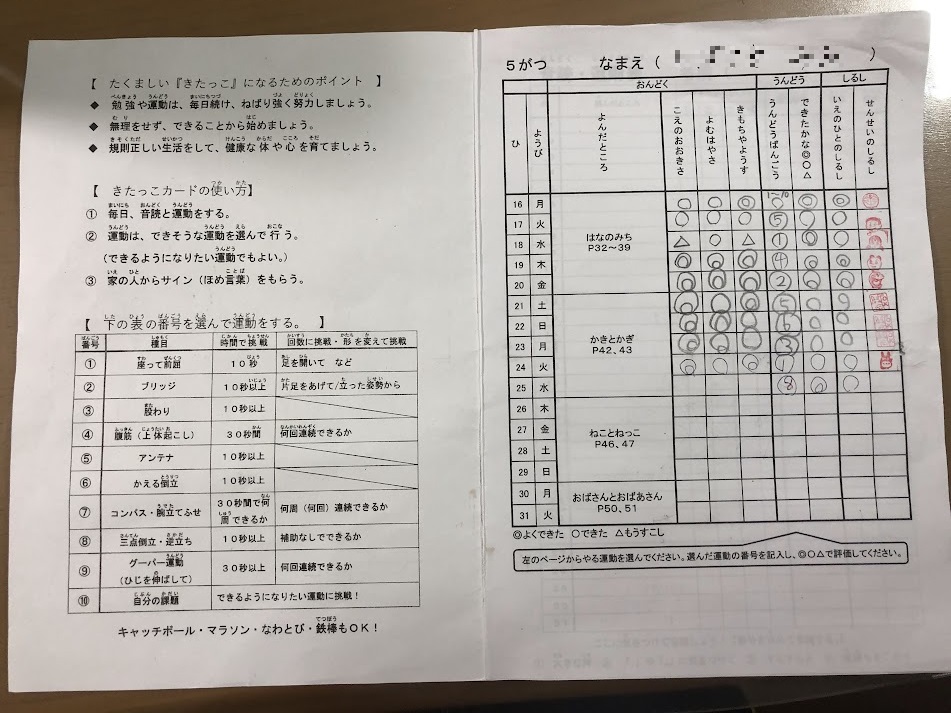 【 たくましい『きたっこ』になるためのポイント 】
◆ 勉強や運動は、毎日続け、ねばり強く努力しましょう。
◆ 無理をせず、できることから始めましょう。
◆ 規則正しい生活をして、健康な体や心を育てましょう。
【 きたっこカードの使い方】
① 毎日、音読と運動をする。
② 運動は、できそうな運動を選んで行う。
(できるようになりたい運動でもよい。)
③ 家の人からサイン（ほめ言葉）をもらう。
【 下の表の番号を選んで運動をする。 】
番号 種目 時間で挑戦 回数に挑戦・形を変えて挑戦
① 座って前屈 10秒 足を開いて など
② ブリッジ 10秒以上 片足をあげて/立った姿勢から
③ 股わり 10秒以上
④ 腹筋（上体起こし） 30秒間 何回連続できるか
⑤ アンテナ 10秒以上
⑥ かえる倒立 10秒以上
⑦ コンパス・腕立てふせ 30秒間で何周できるか 何周（何回）連続できるか
⑧ 三点倒立・逆立ち 10秒以上 補助なしでできるか
⑨ グーパー運動（ひじを伸ばして） 30秒以上 何回連続できるか
⑩ 自分の課題 できるようになりたい運動に挑戦！
キャッチボール・マラソン・なわとび・鉄棒もOK！
5がつ なまえ（ ）
おんどく うんどう しるし
ひ ようび よんだところ こえのおおきさ よむはやさ きもちやようす うんどうばんごう できたかな◎○△ いえのひとのしるし せんせいのしるし
16 月 ○ ○ ◎ 1~10 ◎ ◎
17 火 ○ ○ ○ ⑤ ○ ○
18 水 はなのみち P32～39 △ ○ △ ① ◎ ○
19 木 ◎ ◎ ◎ ④ ◎ ◎
20 金 ◎ ◎ ◎ ② ◎ ◎
21 土
22 日
23 月 かきとかぎ P42、43
24 火
25 水 ⑧ ◎ ○
26 木
27 金 ねことねっこ P46、47
28 土
29 日
30 月 おばさんとおばあさん P50、51
31 火
◎よくできた ○できた △もうすこし
左のページからやる運動を選んでください。選んだ運動の番号を記入し、◎○△で評価してください。